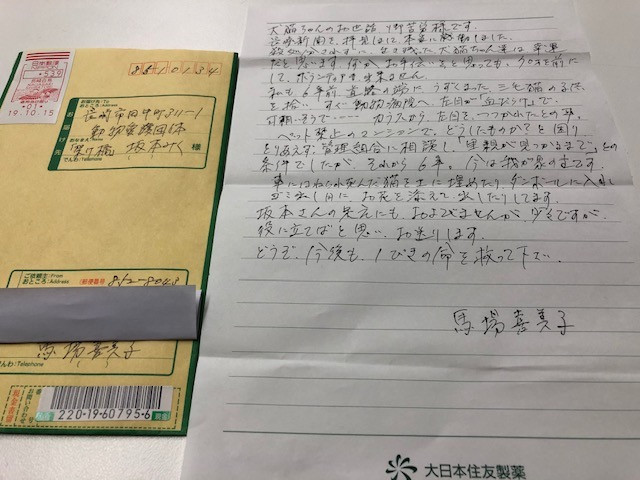 日本郵便
539
19.10.15
851 0134
お届け先 To
おところ:Address
長崎市田中町311-1
動物愛護団体
「架け橋」坂本みく 様
でんわ:Telephone
お届け先
ご依頼主:From
おところ:Address
(郵便番号 852-8043
馬場喜美子
でんわ:Telephone
お問い合わせ番号
220-19-60795-6
犬猫ちゃんのお世話、ご苦労様です。
長崎新聞で、拝見して、本当に感動しました。
殺処分されずに、生き残った犬猫ちゃん達は幸運
だと思います。何か、お手伝いをと思っても、
して、ボランティアも出来ません。
私も、6年前、道路の端に、うずくまった、三毛猫の子供
を拾い、すぐ動物病院へ。左目が血だらけで、
可哀そうで…… カラスから、左目を、つつかれたとの事。
ペット禁止のマンションで、どうしたものか?と困り
とりあえず、管理組合に相談し「里親が見つかるまで」との
条件でしたが、それから6年。今は我が家の主です。
車にはねられ死んだ猫を土に埋めたり、ダンボールに入れ
ゴミ出し日に、お花を添えて出したりしてます。
坂本さんの足元にも、およびませんが、少々ですが、
役に立てばと思い、お送りします。
どうぞ、今後も、1ぴきの命を救って下さい。
馬場喜美子
大日本住友製薬